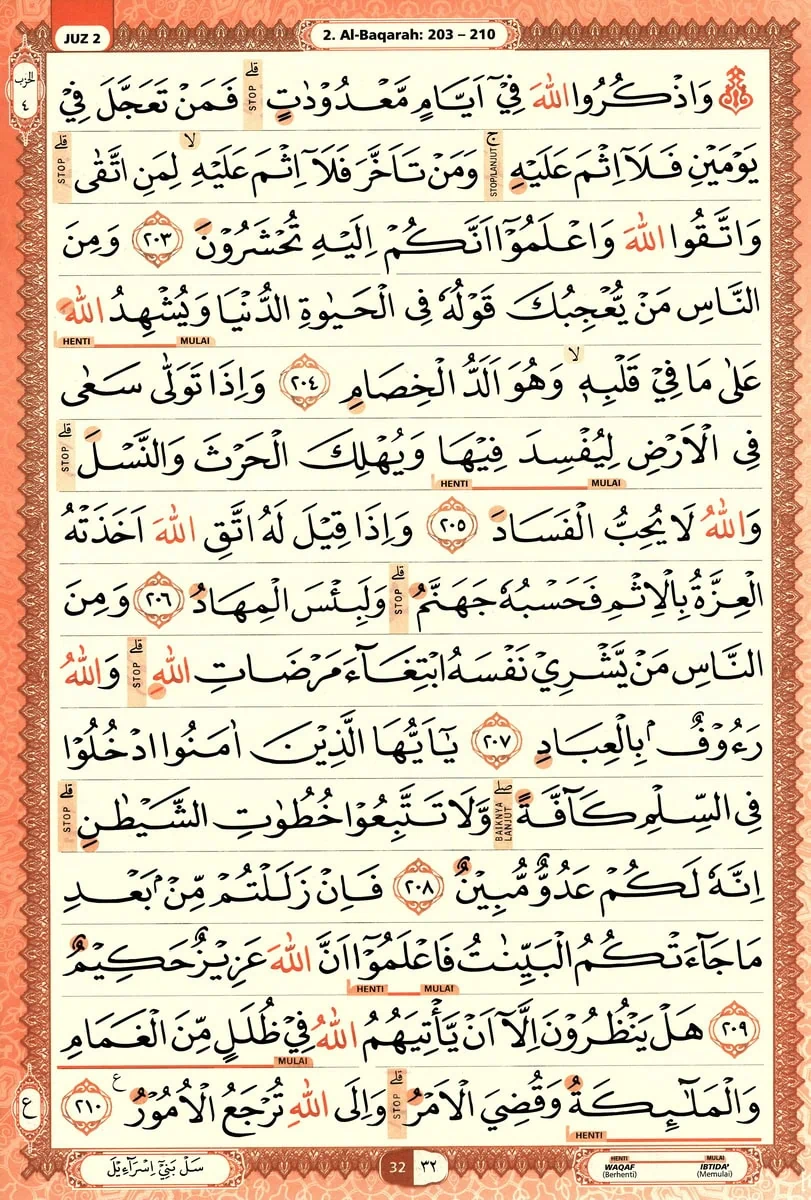 JUZ 2
2. Al-Baqarah: 203 – 210
الحزب ٤
وَاذْكُرُوا اللّٰهَ فِيْٓ اَيَّامٍ مَّعْدُوْدٰتٍ ۗ STOP فَمَنْ تَعَجَّلَ فِيْ
يَوْمَيْنِ فَلَآ اِثْمَ عَلَيْهِ ۚ STOP/LANJUT وَمَنْ تَاَخَّرَ فَلَآ اِثْمَ عَلَيْهِ ۙ لِمَنِ اتَّقٰى ۗ STOP
وَاتَّقُوا اللّٰهَ وَاعْلَمُوْٓا اَنَّكُمْ اِلَيْهِ تُحْشَرُوْنَ ٢٠٣ وَمِنَ
النَّاسِ مَنْ يُّعْجِبُكَ قَوْلُهٗ فِى الْحَيٰوةِ الدُّنْيَا وَيُشْهِدُ اللّٰهَ
HENTI MULAI
عَلٰى مَا فِيْ قَلْبِهٖ ۙ وَهُوَ اَلَدُّ الْخِصَامِ ٢٠٤ وَاِذَا تَوَلّٰى سَعٰى
فِى الْاَرْضِ لِيُفْسِدَ فِيْهَا وَيُهْلِكَ الْحَرْثَ وَالنَّسْلَ ۗ STOP
HENTI MULAI
وَاللّٰهُ لَا يُحِبُّ الْفَسَادَ ٢٠٥ وَاِذَا قِيْلَ لَهُ اتَّقِ اللّٰهَ اَخَذَتْهُ
الْعِزَّةُ بِالْاِثْمِ فَحَسْبُهٗ جَهَنَّمُ ۗ STOP وَلَبِئْسَ الْمِهَادُ ٢٠٦ وَمِنَ
النَّاسِ مَنْ يَّشْرِيْ نَفْسَهُ ابْتِغَاۤءَ مَرْضَاتِ اللّٰهِ ۗ STOP وَاللّٰهُ
رَءُوْفٌۢ بِالْعِبَادِ ٢٠٧ يٰٓاَيُّهَا الَّذِيْنَ اٰمَنُوا ادْخُلُوْا
فِى السِّلْمِ كَاۤفَّةً ۖ BAIKNYA LANJUT وَّلَا تَتَّبِعُوْا خُطُوٰتِ الشَّيْطٰنِ ۗ STOP
اِنَّهٗ لَكُمْ عَدُوٌّ مُّبِيْنٌ ٢٠٨ فَاِنْ زَلَلْتُمْ مِّنْۢ بَعْدِ
مَا جَاۤءَتْكُمُ الْبَيِّنٰتُ فَاعْلَمُوْٓا اَنَّ اللّٰهَ عَزِيْزٌ حَكِيْمٌ
HENTI MULAI
٢٠٩ هَلْ يَنْظُرُوْنَ اِلَّآ اَنْ يَّأْتِيَهُمُ اللّٰهُ فِيْ ظُلَلٍ مِّنَ الْغَمَامِ
MULAI
وَالْمَلٰۤىِٕكَةُ وَقُضِيَ الْاَمْرُ ۗ STOP وَاِلَى اللّٰهِ تُرْجَعُ الْاُمُوْرُ ࣖ ٢١٠
HENTI
ع
سَلْ بَنِيْٓ اِسْرَاۤءِيْلَ
32 ٣٢
HENTI MULAI
WAQAF IBTIDA'
(Berhenti) (Memulai)